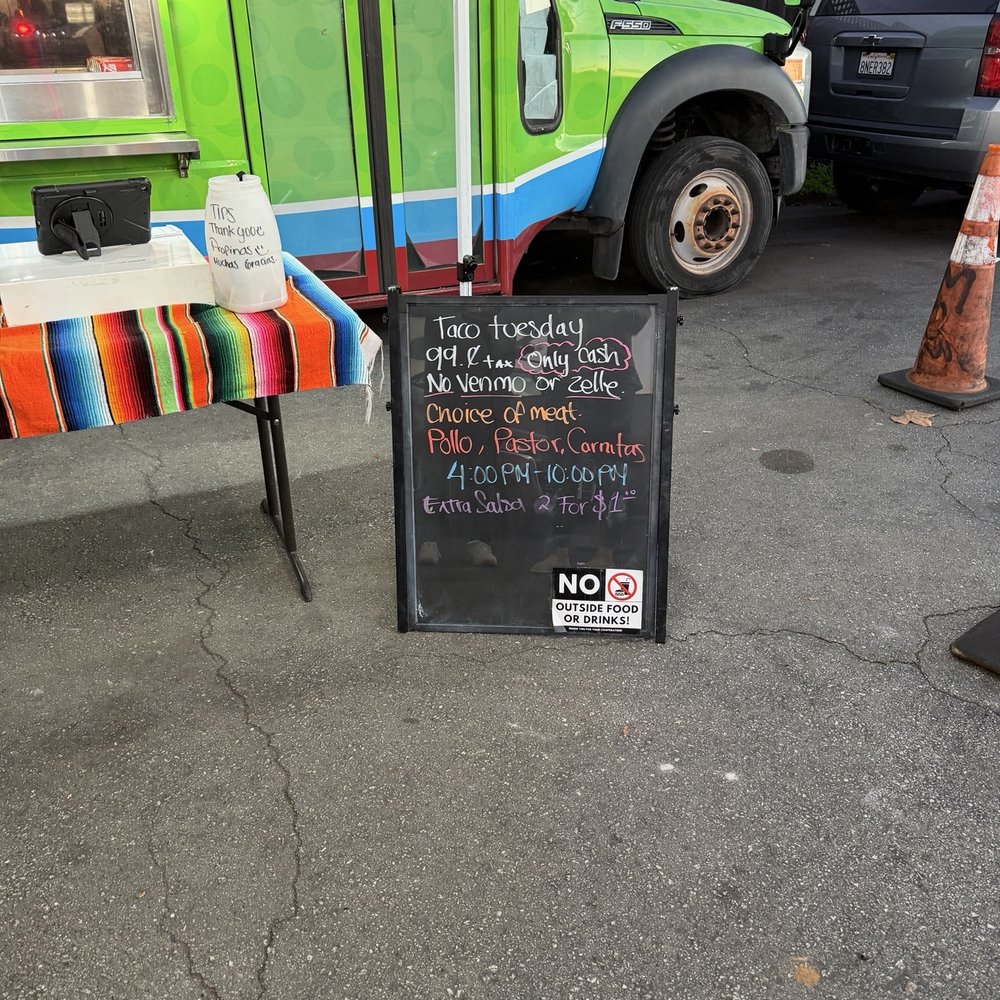 F-550
8NER382
TIPS
Thank you
Propinas
Muchas Gracias
Taco tuesday
99.¢ + tax Only cash
No Venmo or Zelle.
Choice of meat.
Pollo, Pastor, Carnitas
4:00 PM - 10:00 PM
Extra Salsa 2 For $1.00
NO
OUTSIDE FOOD
OR DRINKS!
THANK YOU FOR YOUR COOPERATION!